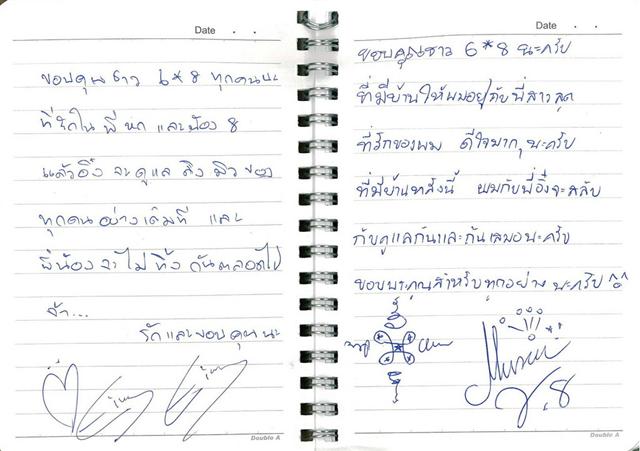 Date . .
ขอบคุณชาว 6*8 ทุกคนนะ
ที่รักใน พี่หก และน้อง 8
แล้วอิ๋ง จะดูแล สิงมิว ของ
ทุกคนอย่างเต็มที่ และ
พี่น้องจะไม่ทิ้งกันตลอดไป
จ้า...
รักและขอบคุณนะ
Double A
Date . .
ขอบคุณชาว 6*8 นะครับ
ที่มีบ้านให้ผมอยู่กับพี่สาวสุด
ที่รักของผม ดีใจมากๆนะครับ
ที่มีบ้านหลังนี้ ผมกับพี่อิ๋งจะสลับ
กันดูแลกันและกันเสมอนะครับ
ขอบพระคุณสำหรับทุกอย่าง นะครับ
V.8
Double A